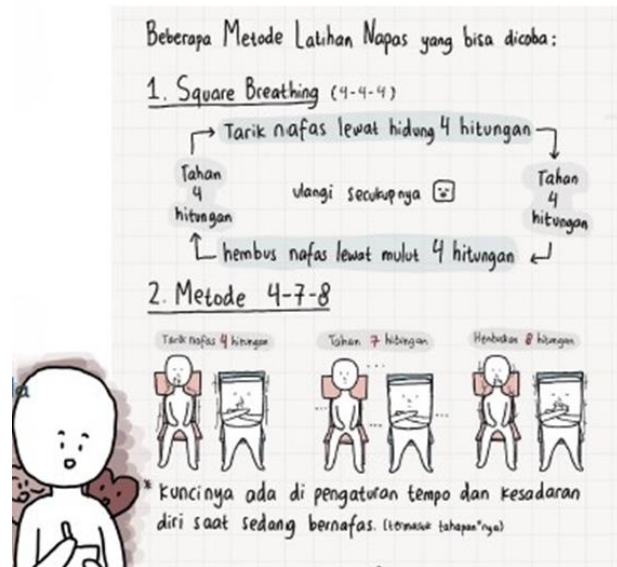 Beberapa Metode Latihan Napas yang bisa dicoba:
1. Square Breathing (4-4-4)
Tarik nafas lewat hidung 4 hitungan
Tahan
4
hitungan
ulangi secukupnya
Tahan
4
hitungan
hembus nafas lewat mulut 4 hitungan
2. Metode 4-7-8
Tarik nafas 4 hitungan
Tahan 7 hitungan
Hembuskan 8 hitungan
* kuncinya ada di pengaturan tempo dan kesadaran
diri saat sedang bernafas. (termasuk tahapan"nya)